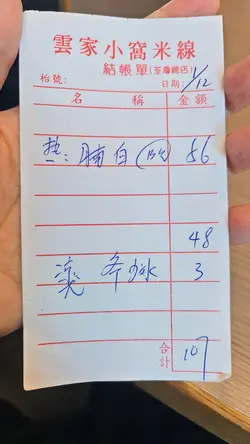 雲家小窩米線
結帳單(至尊總店)
枱號: 日期: 1/12
名稱 金額
热: 腩白 56
48
凍 3
合計 107